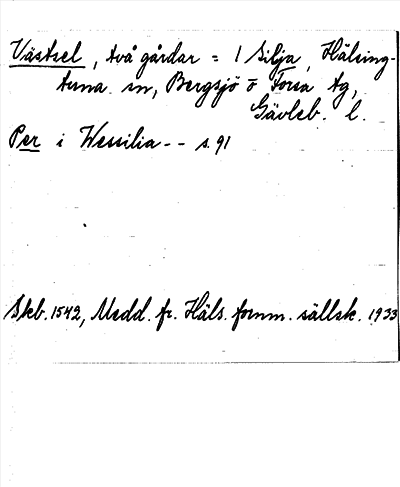 Västsel, två gårdar = 1 Silja, Hälsing-
tuna sn, Bergsjö o Forsa tg,
Gävleb. l.
Per i Wessilia -- s. 91
Skb. 1542, Medd. fr. Häls. fornm. sällsk. 1933